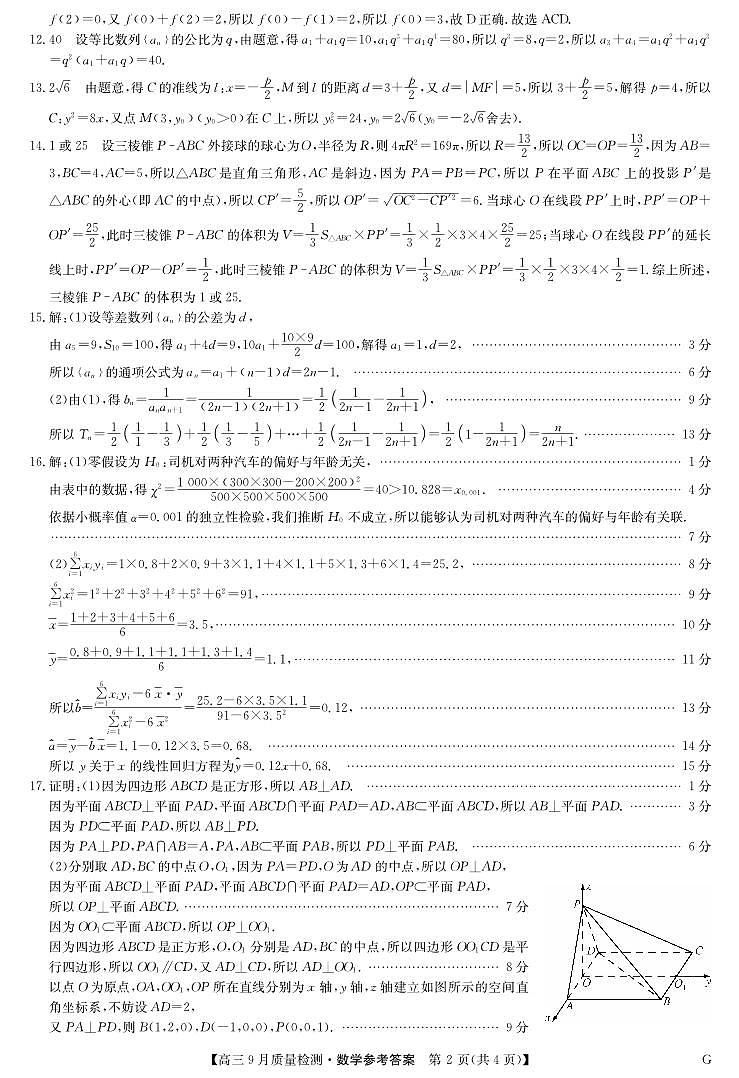 f(2)=0,又 f(0)+f(2)=2,所以 f(0)-f(1)=2,所以 f(0)=3,故 D 正确.故选 ACD.
12.40 设等比数列{aₙ}的公比为 q,由题意,得 a₁+a₁q=10,a₁q³+a₁q⁴=80,所以 q³=8,q=2,所以 a₃+a₄=a₁q²+a₁q³
=q²(a₁+a₁q)=40.
13.2√6 由题意,得 C 的准线为 l:x=-p/2,M 到 l 的距离 d=3+p/2,又 d=|MF|=5,所以 3+p/2=5,解得 p=4,所以
C:y²=8x,又点 M(3,y₀)(y₀>0)在 C 上,所以 y₀²=24,y₀=2√6(y₀=-2√6舍去).
14.1 或 25 设三棱锥 P-ABC 外接球的球心为 O,半径为 R,则 4πR²=169π,所以 R=13/2,所以 OC=OP=13/2,因为 AB=
3,BC=4,AC=5,所以△ABC 是直角三角形,AC 是斜边,因为 PA=PB=PC,所以 P 在平面 ABC 上的投影 P′是
△ABC 的外心(即 AC 的中点),所以 CP′=5/2,所以 OP′=√(OC²-CP′²)=6.当球心 O 在线段 PP′上时,PP′=OP+
OP′=25/2,此时三棱锥 P-ABC 的体积为 V=1/3 S△ABC×PP′=1/3×1/2×3×4×25/2=25;当球心 O 在线段 PP′的延长
线上时,PP′=OP-OP′=1/2,此时三棱锥 P-ABC 的体积为 V=1/3 S△ABC×PP′=1/3×1/2×3×4×1/2=1.综上所述,
三棱锥 P-ABC 的体积为 1 或 25.
15.解:(1)设等差数列{aₙ}的公差为 d,
由 a₅=9,S₁₀=100,得 a₁+4d=9,10a₁+(10×9)/2 d=100,解得 a₁=1,d=2, …… 3 分
所以{aₙ}的通项公式为 aₙ=a₁+(n-1)d=2n-1. …… 6 分
(2)由(1),得 bₙ=1/(aₙaₙ₊₁)=1/((2n-1)(2n+1))=1/2(1/(2n-1)-1/(2n+1)), …… 9 分
所以 Tₙ=1/2(1/1-1/3)+1/2(1/3-1/5)+…+1/2(1/(2n-1)-1/(2n+1))=1/2(1-1/(2n+1))=n/(2n+1). …… 13 分
16.解:(1)零假设为 H₀:司机对两种汽车的偏好与年龄无关, …… 1 分
由表中的数据,得 χ²=(1 000×(300×300-200×200)²)/(500×500×500×500)=40>10.828=x₀.₀₀₁. …… 4 分
依据小概率值 α=0.001 的独立性检验,我们推断 H₀ 不成立,所以能够认为司机对两种汽车的偏好与年龄有关联.
…… 7 分
(2)∑(i=1→6)xᵢyᵢ=1×0.8+2×0.9+3×1.1+4×1.1+5×1.3+6×1.4=25.2, …… 8 分
∑(i=1→6)xᵢ²=1²+2²+3²+4²+5²+6²=91, …… 9 分
x̄=(1+2+3+4+5+6)/6=3.5, …… 10 分
ȳ=(0.8+0.9+1.1+1.1+1.3+1.4)/6=1.1, …… 11 分
所以b̂=(∑(i=1→6)xᵢyᵢ-6x̄·ȳ)/(∑(i=1→6)xᵢ²-6x̄²)=(25.2-6×3.5×1.1)/(91-6×3.5²)=0.12, …… 13 分
â=ȳ-b̂x̄=1.1-0.12×3.5=0.68. …… 14 分
所以 y 关于 x 的线性回归方程为ŷ=0.12x+0.68. …… 15 分
17.证明:(1)因为四边形 ABCD 是正方形,所以 AB⊥AD. …… 1 分
因为平面 ABCD⊥平面 PAD,平面 ABCD∩平面 PAD=AD,AB⊂平面 ABCD,所以 AB⊥平面 PAD. …… 3 分
因为 PD⊂平面 PAD,所以 AB⊥PD.
因为 PA⊥PD,PA∩AB=A,PA,AB⊂平面 PAB,所以 PD⊥平面 PAB. …… 6 分
(2)分别取 AD,BC 的中点 O,O₁,因为 PA=PD,O 为 AD 的中点,所以 OP⊥AD,
因为平面 ABCD⊥平面 PAD,平面 ABCD∩平面 PAD=AD,OP⊂平面 PAD,
所以 OP⊥平面 ABCD. …… 7 分
因为 OO₁⊂平面 ABCD,所以 OP⊥OO₁.
因为四边形 ABCD 是正方形,O,O₁ 分别是 AD,BC 的中点,所以四边形 OO₁CD 是平
行四边形,所以 OO₁∥CD,又 AD⊥CD,所以 AD⊥OO₁. …… 8 分
以点 O 为原点,OA,OO₁,OP 所在直线分别为 x 轴,y 轴,z 轴建立如图所示的空间直
角坐标系,不妨设 AD=2,
又 PA⊥PD,则 B(1,2,0),D(-1,0,0),P(0,0,1). …… 9 分
z
P
D
C
O
O₁
y
A
B
x
【高三 9 月质量检测·数学参考答案 第 2 页(共 4 页)】
G